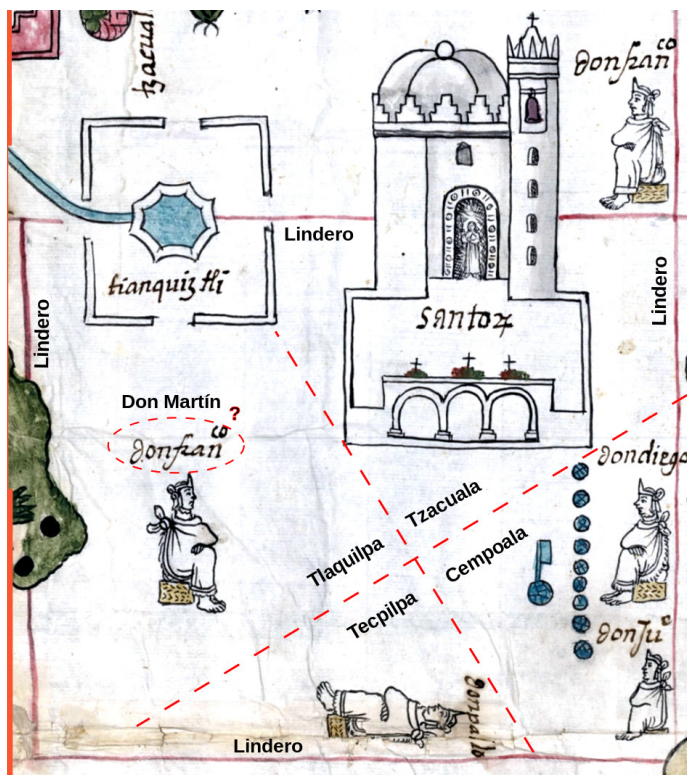 tzacual
donfran co
Lindero
tianquiztli
Lindero
Lindero
santoz
Don Martín
?
donfran co
dondiego
Tzacuala
Tlaquilpa
Cempoala
Tecpilpa
donJu e
Lindero